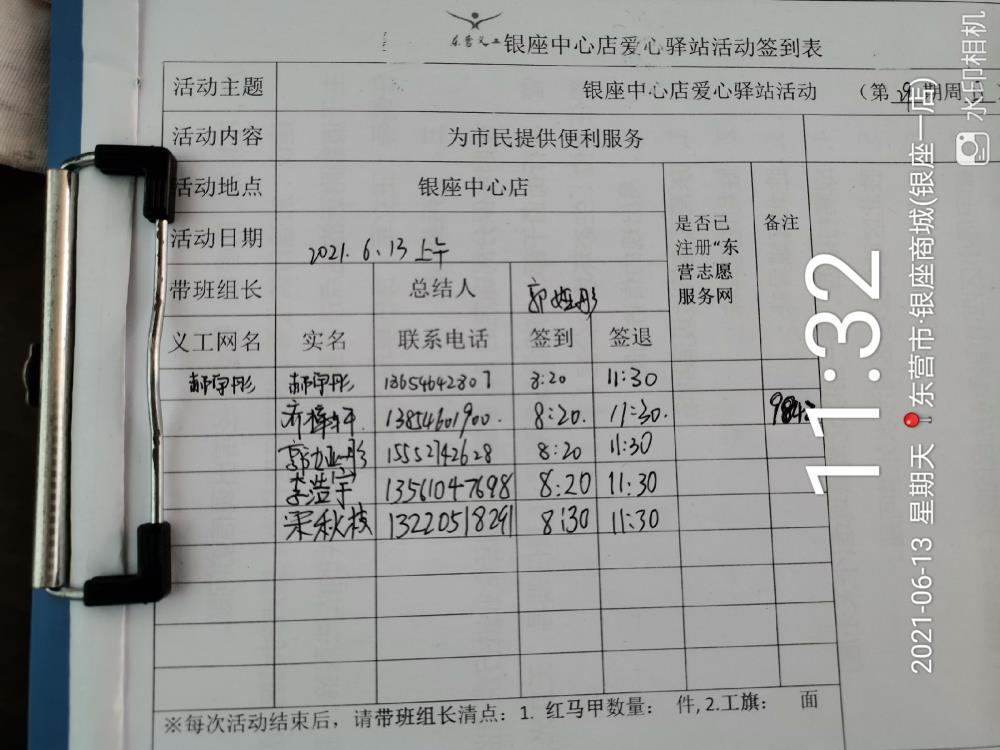 东营义工 银座中心店爱心驿站活动签到表
活动主题 银座中心店爱心驿站活动 (第 期周
活动内容 为市民提供便利服务
活动地点 银座中心店 是否已注册“东营志愿服务网 备注
活动日期 2021.6.13上午
带班组长 总结人 郭 彤
义工网名 实名 联系电话 签到 签退
郝宇彤 郝宇彤 18654642807 8:20 11:30
齐 13854601900. 8:20. 11:30. 984
郭 彤 15552742628 8:20 11:30
李浩宇 13561047698 8:20 11:30
梁秋枝 13220518291 8:30 11:30
※每次活动结束后，请带班组长清点：1. 红马甲数量： 件,2.工旗： 面
11:32
2021-06-13 星期天 东营市·银座商城(银座一店)
水印相机